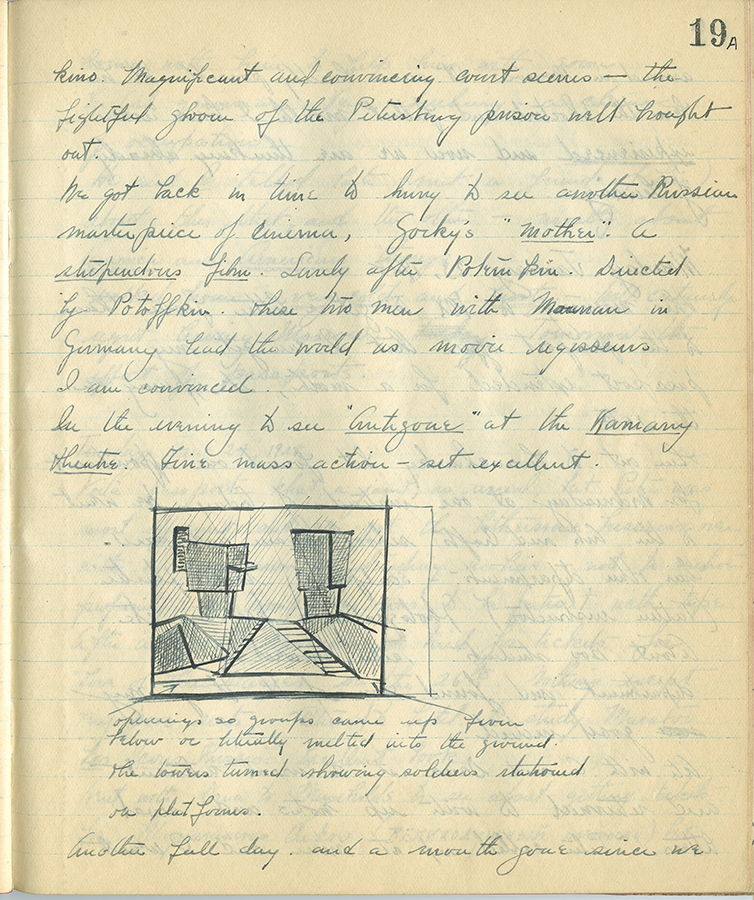 19A
kino. Magnificant and convincing court scenes — the
fightful gloom of the Petersburg prison well brought
out.
We got back in time to hurry to see another Russian
masterpiece of cinema, Gorky's "Mother". A
stupendous film. Surely after Potemkin. Directed
by Potoffkin. These two men with Maurnan in
Germany lead the world as movie regisseurs
I am convinced.
In the evening to see "Antigone" at the Kamany
theatre. Fine mass action — set excellent.
openings so groups came up from
below or literally melted into the ground.
the towers turned showing soldiers stationed
on platforms.
Another full day. and a month gone since we